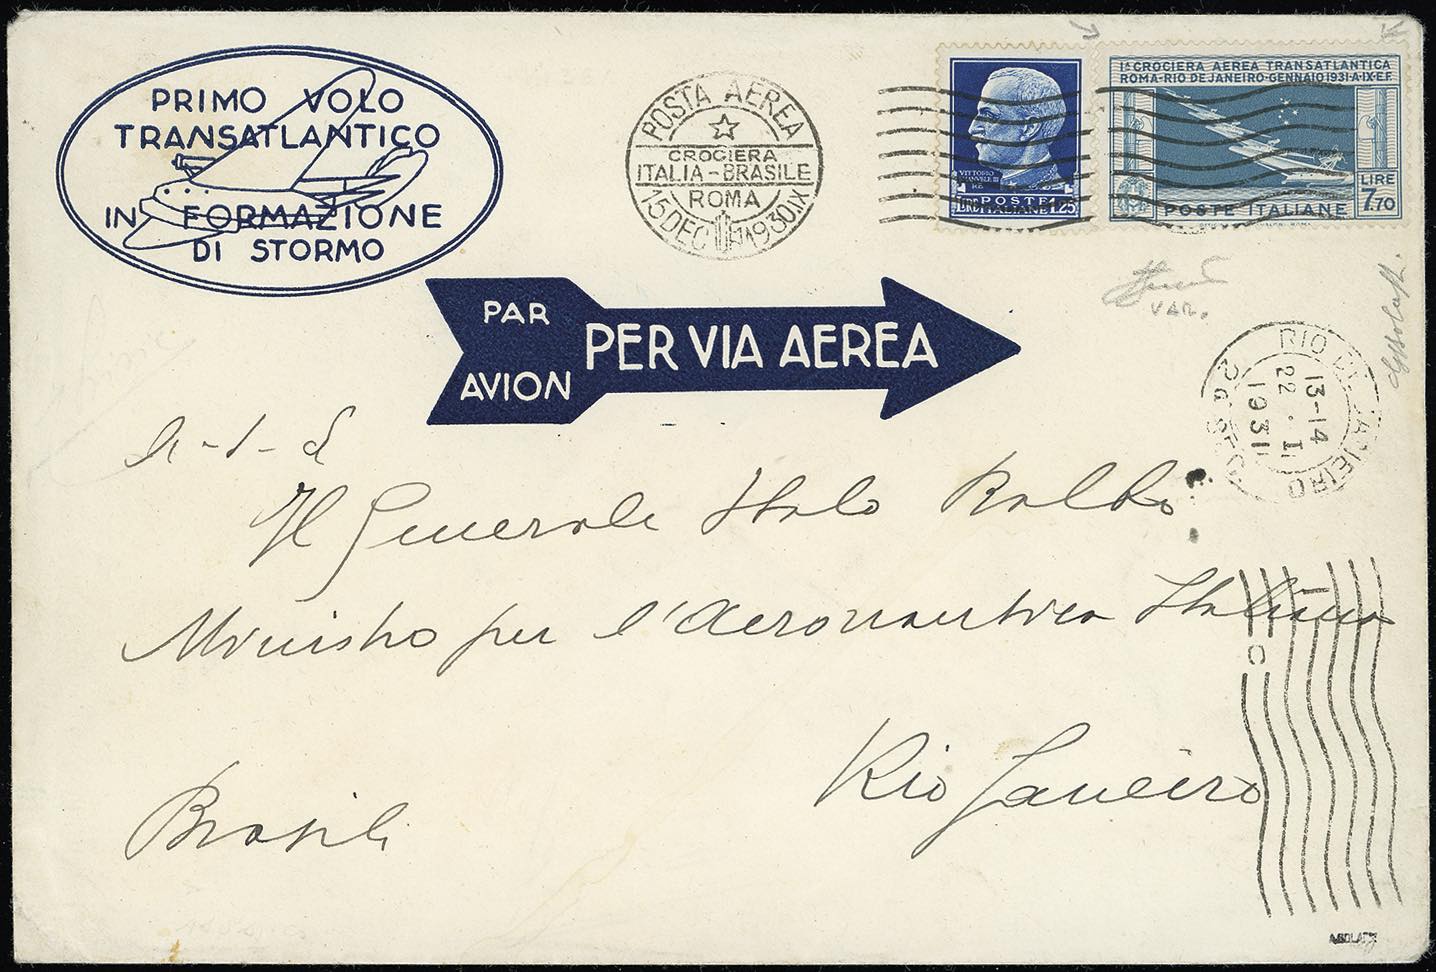 PRIMO VOLO
TRANSATLANTICO
IN FORMAZIONE
DI STORMO
POSTA AEREA
CROCIERA
ITALIA-BRASILE
ROMA
15 DEC 1930.IX
VITTORIO
EMANUELE III
RE
POSTE
ITALIANE
1,25
Iª CROCIERA AEREA TRANSATLANTICA
ROMA-RIO DE JANEIRO-GENNAIO 1931-A.IX-E.F.
LIRE
7,70
POSTE ITALIANE
PAR
AVION
PER VIA AEREA
VAR.
RIO D. JANEIRO
13-14
22 . I
1931
Il Generale Italo Balbo
Ministro per l'Aeronautica Italiana
Rio Janeiro
Brasile
C